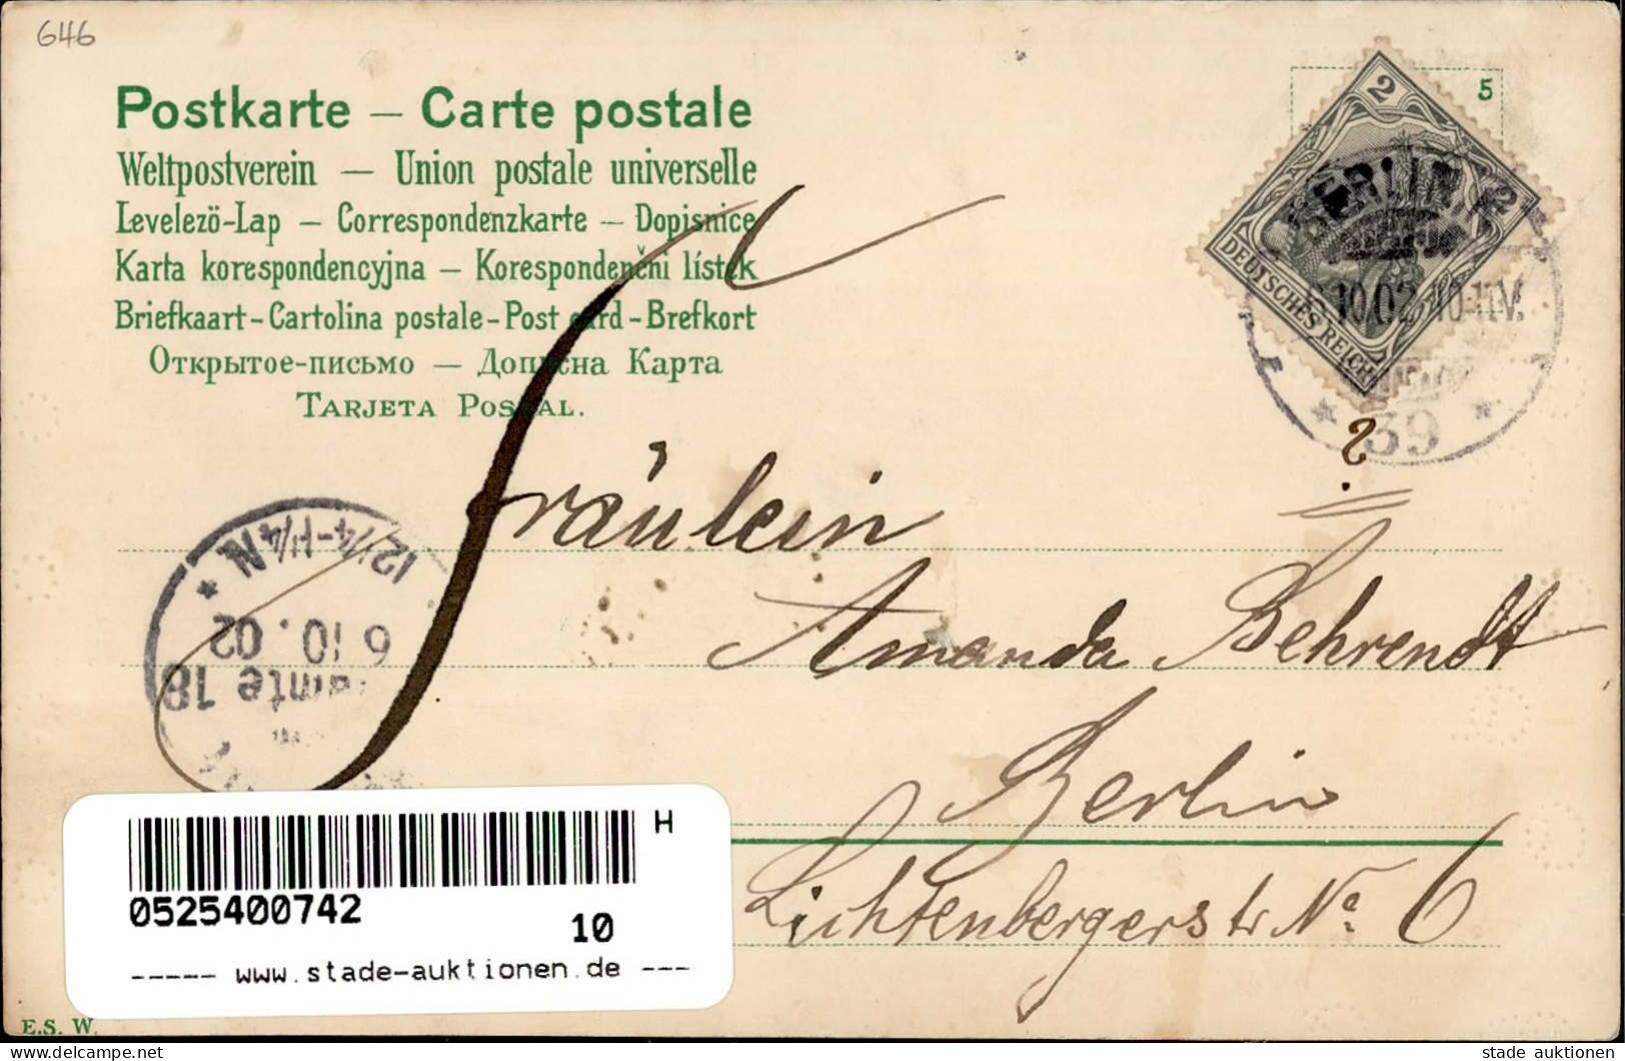 646
Postkarte – Carte postale
Weltpostverein — Union postale universelle
Levelező-Lap – Correspondenzkarte – Dopisnice
Karta korespondencyjna – Korespondenční lístek
Briefkaart - Cartolina postale - Post card - Brefkort
Открытое-письмо — Дописна Карта
TARJETA POSTAL.
5
2
2
DEUTSCHES REICH
BERLIN
10.02 10-11V.
* 39 *
?
Fräulein
12 1/4-1 1/4 N *
6 10.02
18
Amanda Behrendt
Berlin
Lichtenbergerstr No. 6
H
0525400742
10
----- www.stade-auktionen.de ---
E.S.W.
the-img.com
stade auktionen